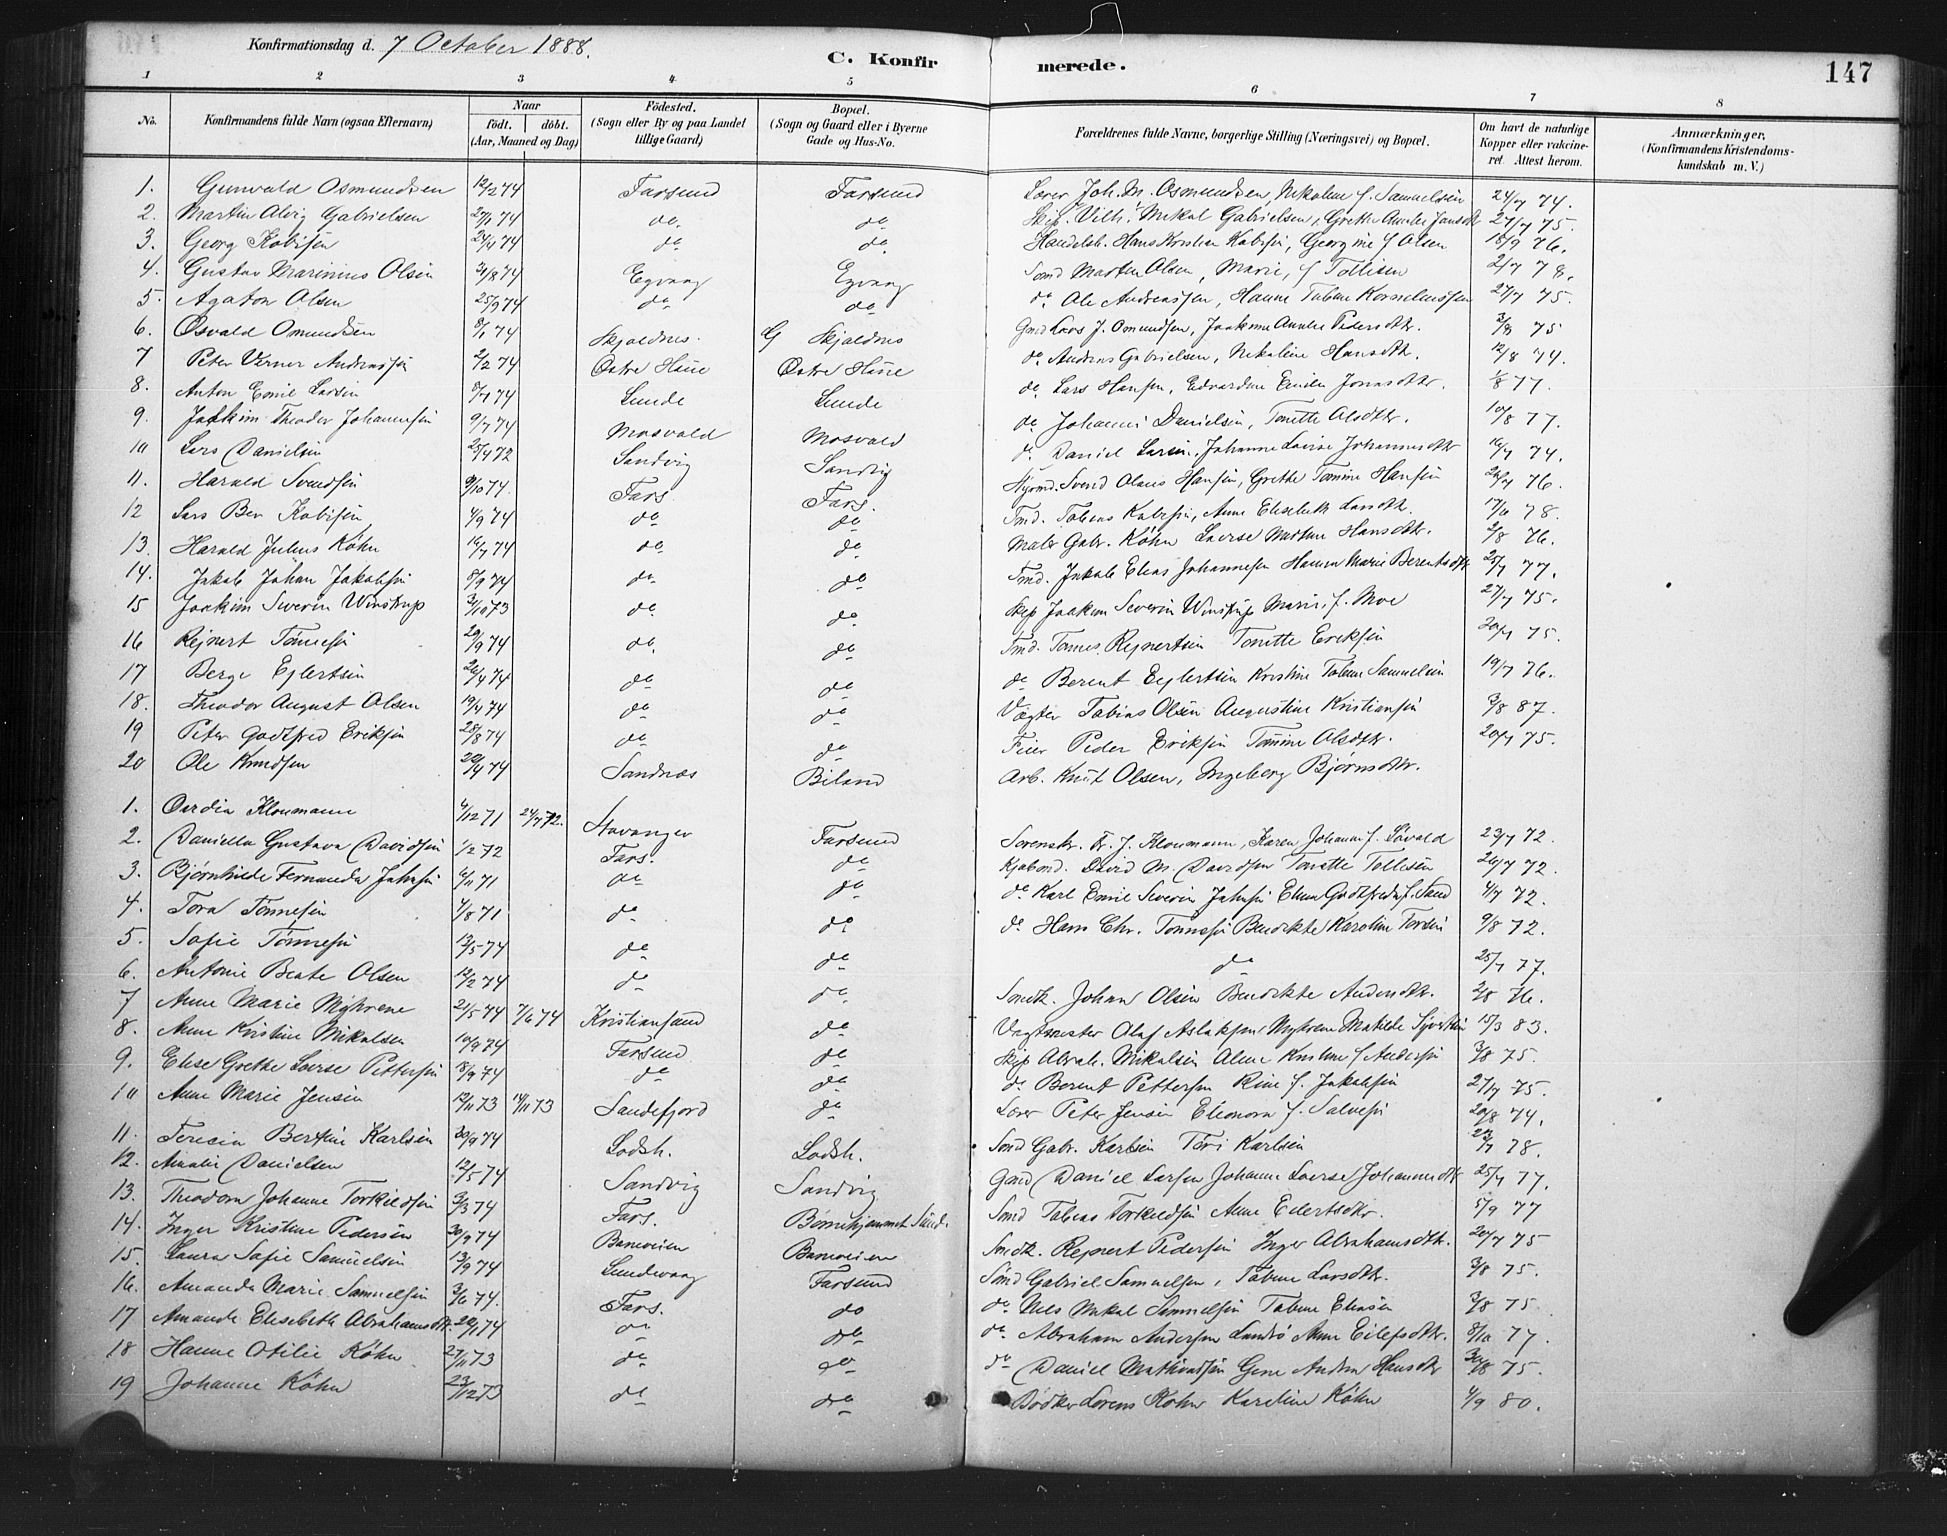 Konfirmationsdag d. 7 October 1888.
C. Konfirmerede.
147
1 2 3 4 5 6 7 8
No. Konfirmandens fulde Navn (ogsaa Efternavn) Naar födt. döbt. (Aar, Maaned og Dag) Födested. (Sogn eller By og paa Landet tillige Gaard) Bopæl. (Sogn og Gaard eller i Byerne Gade og Hus-No. Forældrenes fulde Navne, borgerlige Stilling (Næringsvei) og Bopæl. Om havt de naturlige Kopper eller vakcineret. Attest herom. Anmærkninger, (Konfirmandens Kristendomskundskab m. V.)
1. Gunvald Osmundsen 12/2 74 Farsund Farsund Joh. M. Osmundsen, Nikoline f. Samuelsen 24/7 74.
2. Martin Alvig Gabrielsen 27/1 74 do do Skip. Vilh. Mikal Gabrielsen, Grethe Amalie Jansdtr 27/7 75.
3. Georg Kobisen 24/4 74 do do Handelsb. Hans Kristian Kobisen, Georgine f Olsen 18/9 76.
4. Gustav Marinius Olsen 31/8 74 Egvaag Egvaag Sømd Marten Olsen, Marie, f Tollisen 2/7 78.
5. Agaton Olsen 25/9 74 do do do Ole Andreassen, Hanne Tobine Kornelinssen 27/7 75.
6. Osvald Omundsen 8/1 74 Skjoldnes. G Skjoldnes Gmd Lars J. Omundsen, Joakime Amalie Pedersdtr. 3/8 75
7 Peter Verner Andreassen 2/2 74 Østre Häue Østre Häue do Andreas Gabrielsen, Nikoline Hansdtr. 12/8 74.
8. Anton Emil Larsen 8/7 74 Lunde Lunde do Lars Hansen, Edvardine Emilie Jonasdtr. 1/8 77.
9. Joakim Theodor Johannesen 9/7 74 Mosvold Mosvold do Johannes Danielsen, Tonette Olsdtr. 10/8 77.
10 Lars Danielsen 25/4 72 Sandvig Sandvig do Daniel Larsen, Johanne Lovise Johannesdtr 16/7 74.
11. Harald Svendsen 9/10 74. Fars Fars. Styrmd. Svend Olaus Hansen, Grethe Tomine Hansen 20/7 76.
12 Lars Ben Kobisen 4/9 74 do do Tmd. Tobias Kobisen, Anne Elisabeth Larsdtr. 17/6 78.
13. Harald Julius Køhn 16/7 74 do do Maler Gabr. Køhn Lovise Martine Hansdtr. 2/8 76.
14. Jakob Johan Jakobsen 8/9 74 do do Tmd. Jakob Elias Johannesen Hanna Marie Berentsdtr 25/7 77.
15 Joakim Severin Winstrup 3/10 73 do do Skip Joakim Severin Winstrup Marie, f. Moe 27/7 75.
16 Rejnert Tønnesen 29/9 74 do do Tmd. Tønnes Rejnertsen Tonette Eriksen 20/7 75.
17 Berge Ejlertsen 26/4 74 do do do Berent Ejlertsen Kristine Tobine Samuelsen 19/7 76.
18. Theodor August Olsen 19/4 74 do do Vægter Tobias Olsen Augustine Kristiansen 3/8 87.
19 Peter Godtfred Eriksen 28/8 74 do do Feier Peder Eriksen Tomine Olsdtr. 20/7 75.
20 Ole Knudsen 22/4 74 Sandnæs Biland Arb. Knut Olsen, Ingeborg Bjørnsdtr.
1. Kloumann 4/12 71 24/7 72. Stavanger Farsund Sorenskr. Fr. J. Kloumann, Karen Johanne f. Løvold 23/7 72.
2. Daniella Gustava Davidsen 1/2 72 Fars. do Kjøbmd. David M. Davidsen Tonette Tollisen 26/7 72.
3. Bjørnhilde Fernanda Jahnsen 6/11 71 do do do Karl Emil Severin Jahnsen Elene Godtfreda f. Sand 4/7 72.
4. Tora Tønnesen 7/8 71 do do do Hans Chr. Tønnesen Benedikte Karoline Torsen 9/8 72.
5. Sofie Tønnesen 13/5 74 do do do 25/7 77.
6. Antonie Beate Olsen 12/2 74 do do Smedk. Johan Olsen Benedikte Andersdtr. 2/8 76.
7 Anne Marie Myhrene 21/5 74 7/6 74 Kristiansand do Vagtmester Olaf Aslaksen Myhrene Matilde Syvertsen 15/3 83.
8. Anne Kristine Mikalsen 10/9 74 Farsund do Skip Abrah. Mikalsen Aline Kristine f Andersen 3/8 75.
9. Elise Grethe Lovise Pettersen 18/9 74 do do do Berent Pettersen Rine f. Jakobsen 27/7 75.
10 Anne Marie Jensen 12/11 73 14/11 73 Sandefjord do Peter Jensen Eleonora f. Salvesen 20/8 74.
11. Teresia Bertine Karlsen 30/9 74 Lodsh. Lodsh. Sømd Gabr. Karlsen Tori Karlsen 78.
12. Amalie Danielsen 12/5 74 Sandvig Sandvig Gmd Daniel Larsen Johanne Lovise Johannesdtr 25/7 77.
13. Theodora Johanne Torkildsen 3/3 74 Fars. Børnehjemmet Sund. Sømd Tobias Torkildsen Anne Eilertsdtr. 5/9 77
14. Inger Kristine Pedersen 30/9 74 Baneveien Baneveien Smedk. Rejnert Pedersen Inger Abrahamsdtr. 20/7 75
15. Laura Sofie Samuelsen 13/9 74 Lundevaag Farsund Sømd Gabriel Samuelsen, Tobine Larsdtr. 3/8 75.
16. Amanda Marie Samuelsen 3/6 74. Fars. do do Nils Mikal Samuelsen Tobine Eliasen 3/8 75
17 Amande Elisabeth Abrahamsdtr. 20/1 74 do do do Abraham Andersen Lundø Anne Eilefsdtr. 8/10 77.
18 Hanne Otilie Køhn 27/11 73 do do do Daniel Mathiassen Gine Andrea Hansdtr 30/8 75.
19 Johanne Køhn 23/12 73 do do Bødker Lorens Køhn Karoline Køhn 4/9 80.